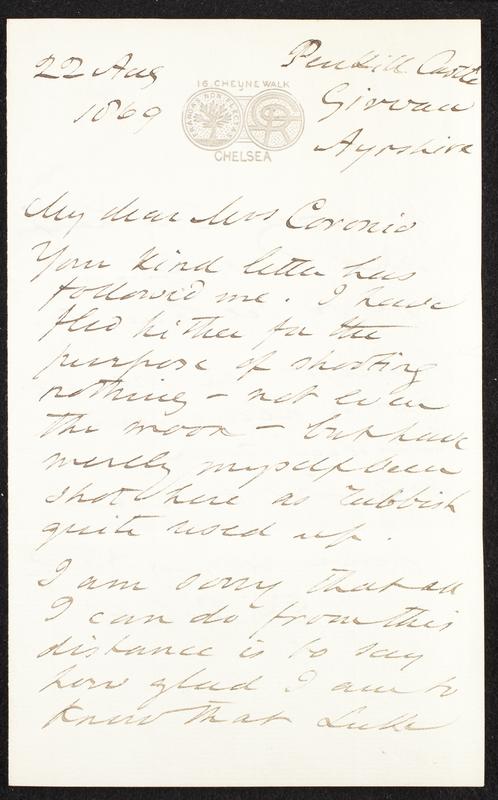 22 Aug
1869
16. CHEYNE WALK
FRANGAS NON FLECTAS
CHELSEA
Penkill Castle
Girvan
Ayrshire
My dear Mrs Coronio
Your kind letter has
followed me. I have
fled hither for the
purpose of shooting
nothing – not even
the moon – but have
merely myself been
shot here as rubbish
quite used up.
I am sorry that all
I can do from this
distance is to say
how glad I am to
know that Luke